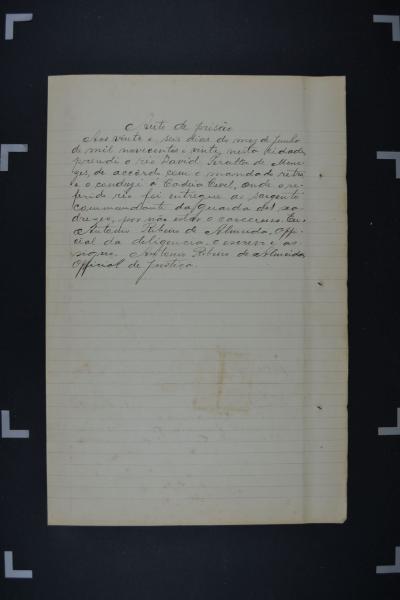 Auto de prisão
Aos vinte e seis dias do mez de Junho
de mil novecentos e vinte, nesta Cidade,
prendi o réo David Peralta de Mene-
zes, de accôrdo com o mandado retro
e o conduzi á Cadêa Civel, onde o re-
ferido réo foi entregue ao sargento
commandante da guarda do xa-
drez, por não estar o carcereiro. Eu,
Antonio Ribeiro de Almeida, Offi-
cial da deligencia, o escrevi e as-
signo. Antonio Ribeiro de Almeida
Official de Justiça.